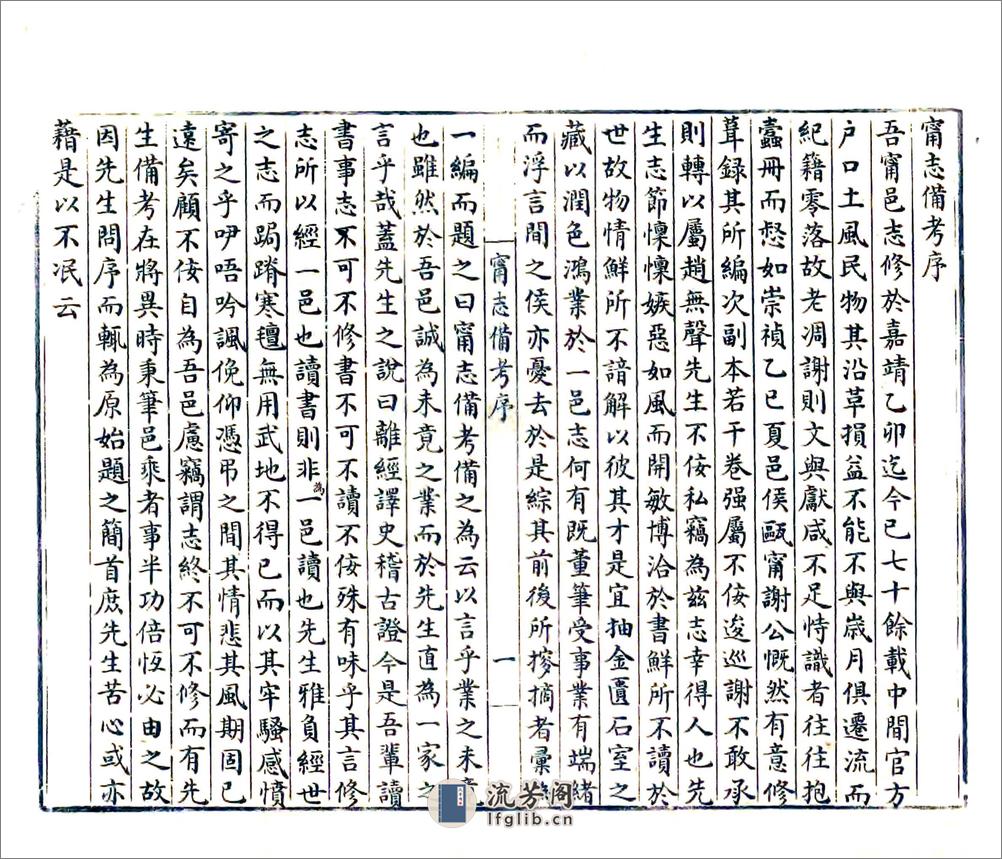 甯志備考序
吾甯邑志修於嘉靖乙卯迄今已七十餘載中間官方
戶口土風民物其沿革損益不能不與歲月俱遷流而
紀籍零落故老凋謝則文與獻咸不足恃識者往往抱
蠹冊而愁如崇禎乙巳夏邑侯甌甯謝公慨然有意修
葺録其所編次副本若干卷强屬不佞逡巡謝不敢承
則轉以屬趙無聲先生不佞私竊為兹志幸得人也先
生志節懍懍嫉惡如風而開敏博洽於書鮮所不讀於
世故物情鮮所不諳解以彼其才是宜抽金匱石室之
藏以潤色鴻業於一邑志何有既董筆受事業有端緒
而浮言間之侯亦憂去於是綜其前後所摉摘者彙
甯志備考序
一
一編而題之曰甯志備考備之為云以言乎業之未竟
也雖然於吾邑誠為未竟之業而於先生直為一家之
言乎哉蓋先生之說曰離經譯史稽古證今是吾輩讀
書事志不可不修書不可不讀不佞殊有味乎其言修
志所以經一邑也讀書則非為一邑讀也先生雅負經世
之志而跼蹐寒氊無用武地不得已而以其牢騷感憤
寄之乎吚唔吟諷俛仰憑弔之間其情悲其風期固已
遠矣顧不佞自為吾邑慮竊謂志終不可不修而有先
生備考在將異時秉筆邑乘者事半功倍恆必由之故
因先生問序而輒為原始題之簡首庶先生苦心或亦
藉是以不泯云
流芳阁
lfglib.cn